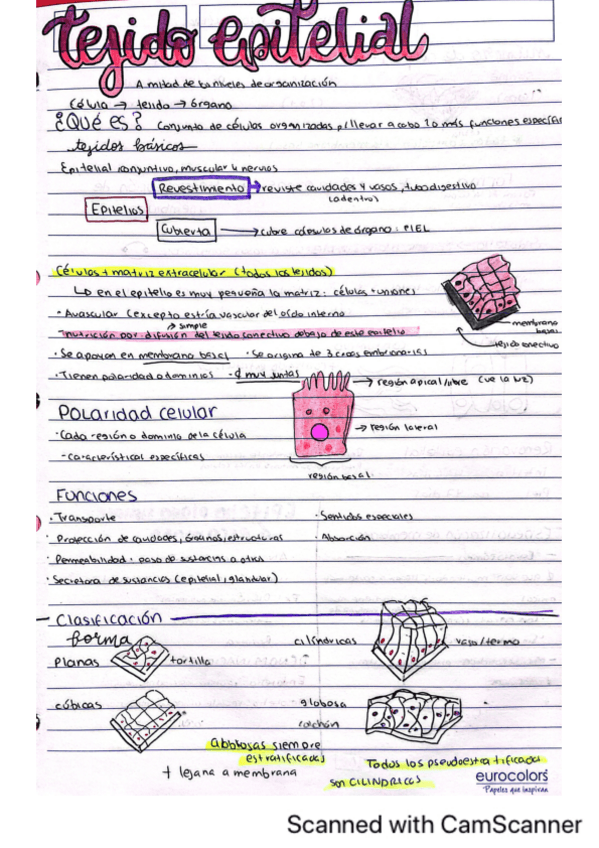 tejido epitelial
A mitad de los niveles de organización
Célula → tejido → órgano
¿Qué es? Conjunto de células organizadas p/llevar a cabo 1 o más funciones específi
tejidos básicos
Epitelial conjuntivo, muscular y nervios
Revestimiento → reviste cavidades y vasos, tubo digestivo
(adentro)
Epitelios
Cubierta → cubre de órgano: PIEL
Células + matriz extracelular (todos los tejidos)
↳ en el epitelio es muy pequeña la matriz: células + uniones
· Avascular (excepto estría vascular del oído interno
↗ simple
-nutrición por difusión del tejido conectivo debajo de este epitelio
membrana
basal
tejido conectivo
· Se apoyan en membrana basal · Se origina de 3 capas embrionarias
· Tienen polaridad o dominios · muy juntas
→ región apical/libre (ve la luz)
Polaridad celular
· Cada región o dominio de la célula
→ región lateral
- Características específicas
región basal
Funciones
· Transporte · Sentidos especiales
· Protección de cavidades, órganos, estructuras · Absorción
· Permeabilidad: paso de sustancias a otras
· Secretora de sustancias (epitelial, glandular)
- Clasificación
forma
cilíndricas vaso/termo
Planas tortilla
cúbicas globosa
colchón
globosas siempre
estratificadas
+ lejana a membrana
Todos los pseudoestratificada
son CILINDRICAS
eurocolors
Papeles que inspiran
Scanned with CamScanner